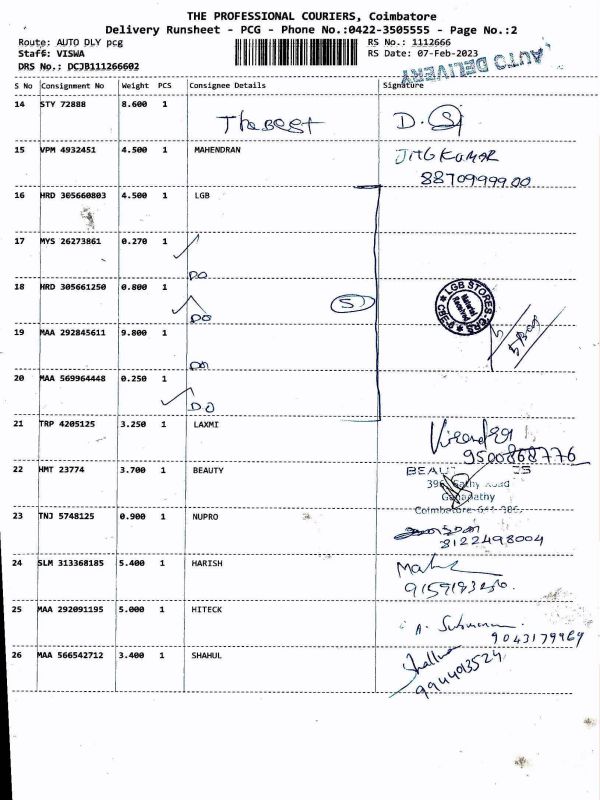 THE PROFESSIONAL COURIERS, Coimbatore
Delivery Runsheet - PCG - Phone No.:0422-3505555 - Page No.:2
Route: AUTO DLY pcg RS No.: 1112666
Staff: VISWA RS Date: 07-Feb-2023
DRS No.: DCJB111266602
AUTO DELIVERY
S No Consignment No Weight PCS Consignee Details Signature
14 STY 72888 8.600 1 The Best D.
15 VPM 4932451 4.500 1 MAHENDRAN KUMAR
8870999900
16 HRD 305660803 4.500 1 LGB
17 MYS 26273861 0.270 1
DO
18 HRD 305661250 0.800 1
DO
5
LGB STORES-CRS
CBE-6
Material
Received
19 MAA 292845611 9.800 1
DO
20 MAA 569964448 0.250 1
DO
21 TRP 4205125 3.250 1 LAXMI
9500868776
22 HMT 23774 3.700 1 BEAUTY
Sathy Road
Coimbatore
23 TNJ 5748125 0.900 1 NUPRO
8122498004
24 SLM 313368185 5.400 1 HARISH
25 MAA 292091195 5.000 1 HITECK A.
26 MAA 566542712 3.400 1 SHAHUL